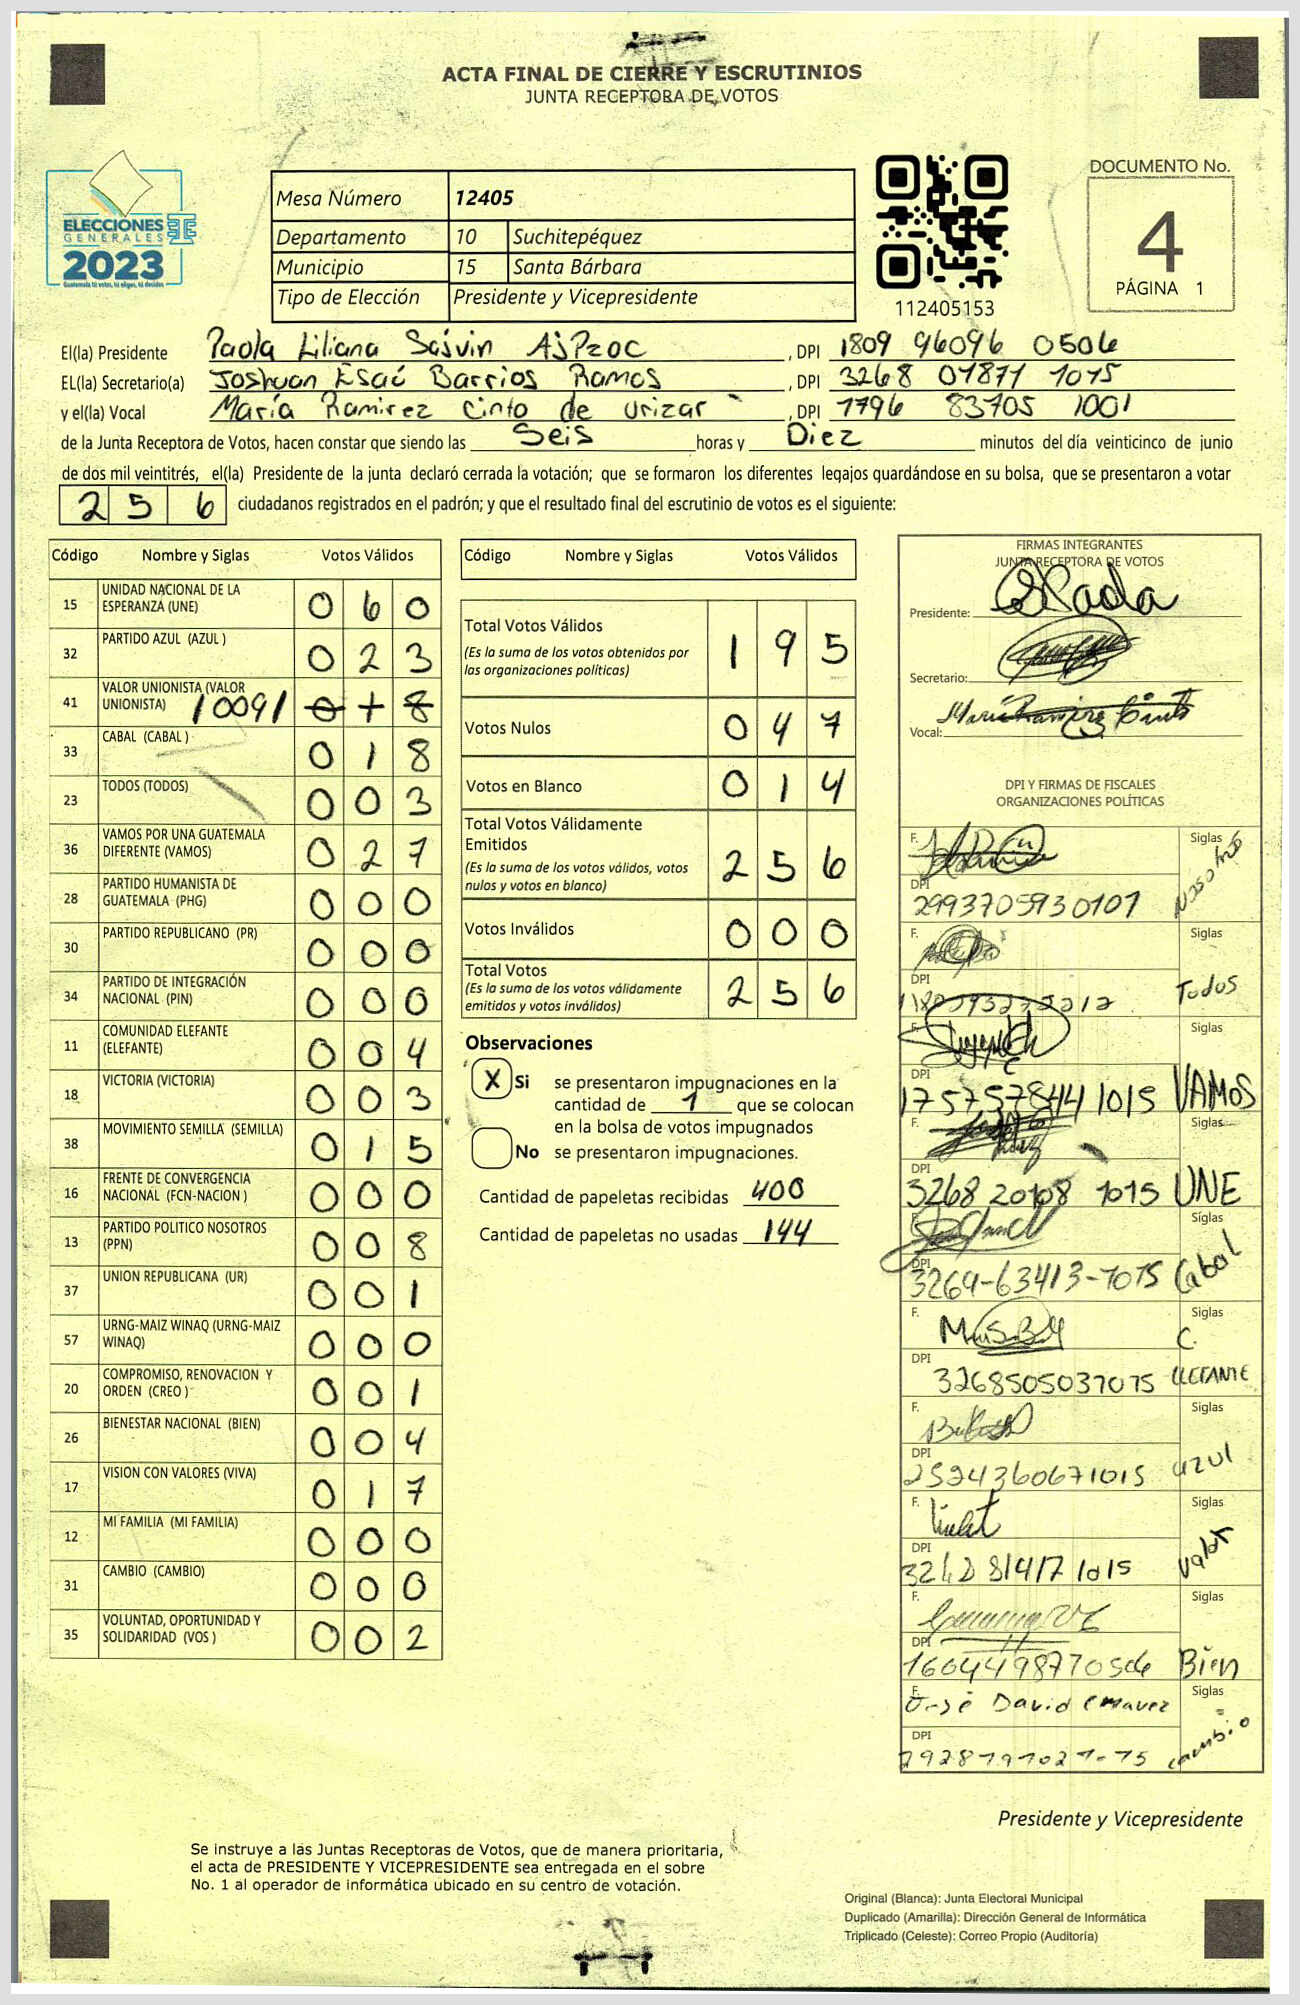 ACTA FINAL DE CIERRE Y ESCRUTINIOS
JUNTA RECEPTORA DE VOTOS
ELECCIONES
GENERALES
2023
Guatemala tú votas, tú eliges, tú decides
Mesa Número 12405
Departamento 10 Suchitepéquez
Municipio 15 Santa Bárbara
Tipo de Elección Presidente y Vicepresidente
112405153
DOCUMENTO No.
4
PÁGINA 1
El(la) Presidente Paola Liliana Sajvin Ajpzoc, DPI 1809 96096 0506
EL(la) Secretario(a) Joshuan Esaú Barrios Ramos, DPI 3268 01871 1015
y el(la) Vocal María Ramirez cinto de urizar, DPI 1796 83705 1001
de la Junta Receptora de Votos, hacen constar que siendo las Seis horas y Diez minutos del día veinticinco de junio
de dos mil veintitrés, el(la) Presidente de la junta declaró cerrada la votación; que se formaron los diferentes legajos guardándose en su bolsa, que se presentaron a votar
256 ciudadanos registrados en el padrón; y que el resultado final del escrutinio de votos es el siguiente:
Código Nombre y Siglas Votos Válidos
15 UNIDAD NACIONAL DE LA ESPERANZA (UNE) 0 6 0
32 PARTIDO AZUL (AZUL ) 0 2 3
41 VALOR UNIONISTA (VALOR UNIONISTA) 10091 0 + 8
33 CABAL (CABAL ) 0 1 8
23 TODOS (TODOS) 0 0 3
36 VAMOS POR UNA GUATEMALA DIFERENTE (VAMOS) 0 2 7
28 PARTIDO HUMANISTA DE GUATEMALA (PHG) 0 0 0
30 PARTIDO REPUBLICANO (PR) 0 0 0
34 PARTIDO DE INTEGRACIÓN NACIONAL (PIN) 0 0 0
11 COMUNIDAD ELEFANTE (ELEFANTE) 0 0 4
18 VICTORIA (VICTORIA) 0 0 3
38 MOVIMIENTO SEMILLA (SEMILLA) 0 1 5
16 FRENTE DE CONVERGENCIA NACIONAL (FCN-NACION ) 0 0 0
13 PARTIDO POLITICO NOSOTROS (PPN) 0 0 8
37 UNION REPUBLICANA (UR) 0 0 1
57 URNG-MAIZ WINAQ (URNG-MAIZ WINAQ) 0 0 0
20 COMPROMISO, RENOVACION Y ORDEN (CREO ) 0 0 1
26 BIENESTAR NACIONAL (BIEN) 0 0 4
17 VISION CON VALORES (VIVA) 0 1 7
12 MI FAMILIA (MI FAMILIA) 0 0 0
31 CAMBIO (CAMBIO) 0 0 0
35 VOLUNTAD, OPORTUNIDAD Y SOLIDARIDAD (VOS ) 0 0 2
Código Nombre y Siglas Votos Válidos
Total Votos Válidos 1 9 5
(Es la suma de los votos obtenidos por
las organizaciones políticas)
Votos Nulos 0 4 7
Votos en Blanco 0 1 4
Total Votos Válidamente
Emitidos 2 5 6
(Es la suma de los votos válidos, votos
nulos y votos en blanco)
Votos Inválidos 0 0 0
Total Votos 2 5 6
(Es la suma de los votos válidamente
emitidos y votos inválidos)
Observaciones
X Si se presentaron impugnaciones en la
cantidad de 1 que se colocan
en la bolsa de votos impugnados
No se presentaron impugnaciones.
Cantidad de papeletas recibidas 400
Cantidad de papeletas no usadas 144
FIRMAS INTEGRANTES
JUNTA RECEPTORA DE VOTOS
Presidente:
Secretario:
Vocal: María Ramirez Cinto
DPI Y FIRMAS DE FISCALES
ORGANIZACIONES POLÍTICAS
F. Siglas Nosotros
DPI 2993705930101
F. Siglas Todos
DPI
F. Siglas VAMOS
DPI 1757578441015
F. Siglas UNE
DPI 3268 20108 1015
F. Siglas Cabal
DPI 3269-63413-1015
F. Siglas C. ELEFANTE
DPI 3268505031015
F. Siglas azul
DPI 2524360671015
F. Siglas Valor
DPI
F. Siglas Bien
DPI 1604498770506
F. José David Chavez Siglas cambio
DPI
Presidente y Vicepresidente
Se instruye a las Juntas Receptoras de Votos, que de manera prioritaria,
el acta de PRESIDENTE Y VICEPRESIDENTE sea entregada en el sobre
No. 1 al operador de informática ubicado en su centro de votación.
Original (Blanca): Junta Electoral Municipal
Duplicado (Amarilla): Dirección General de Informática
Triplicado (Celeste): Correo Propio (Auditoría)